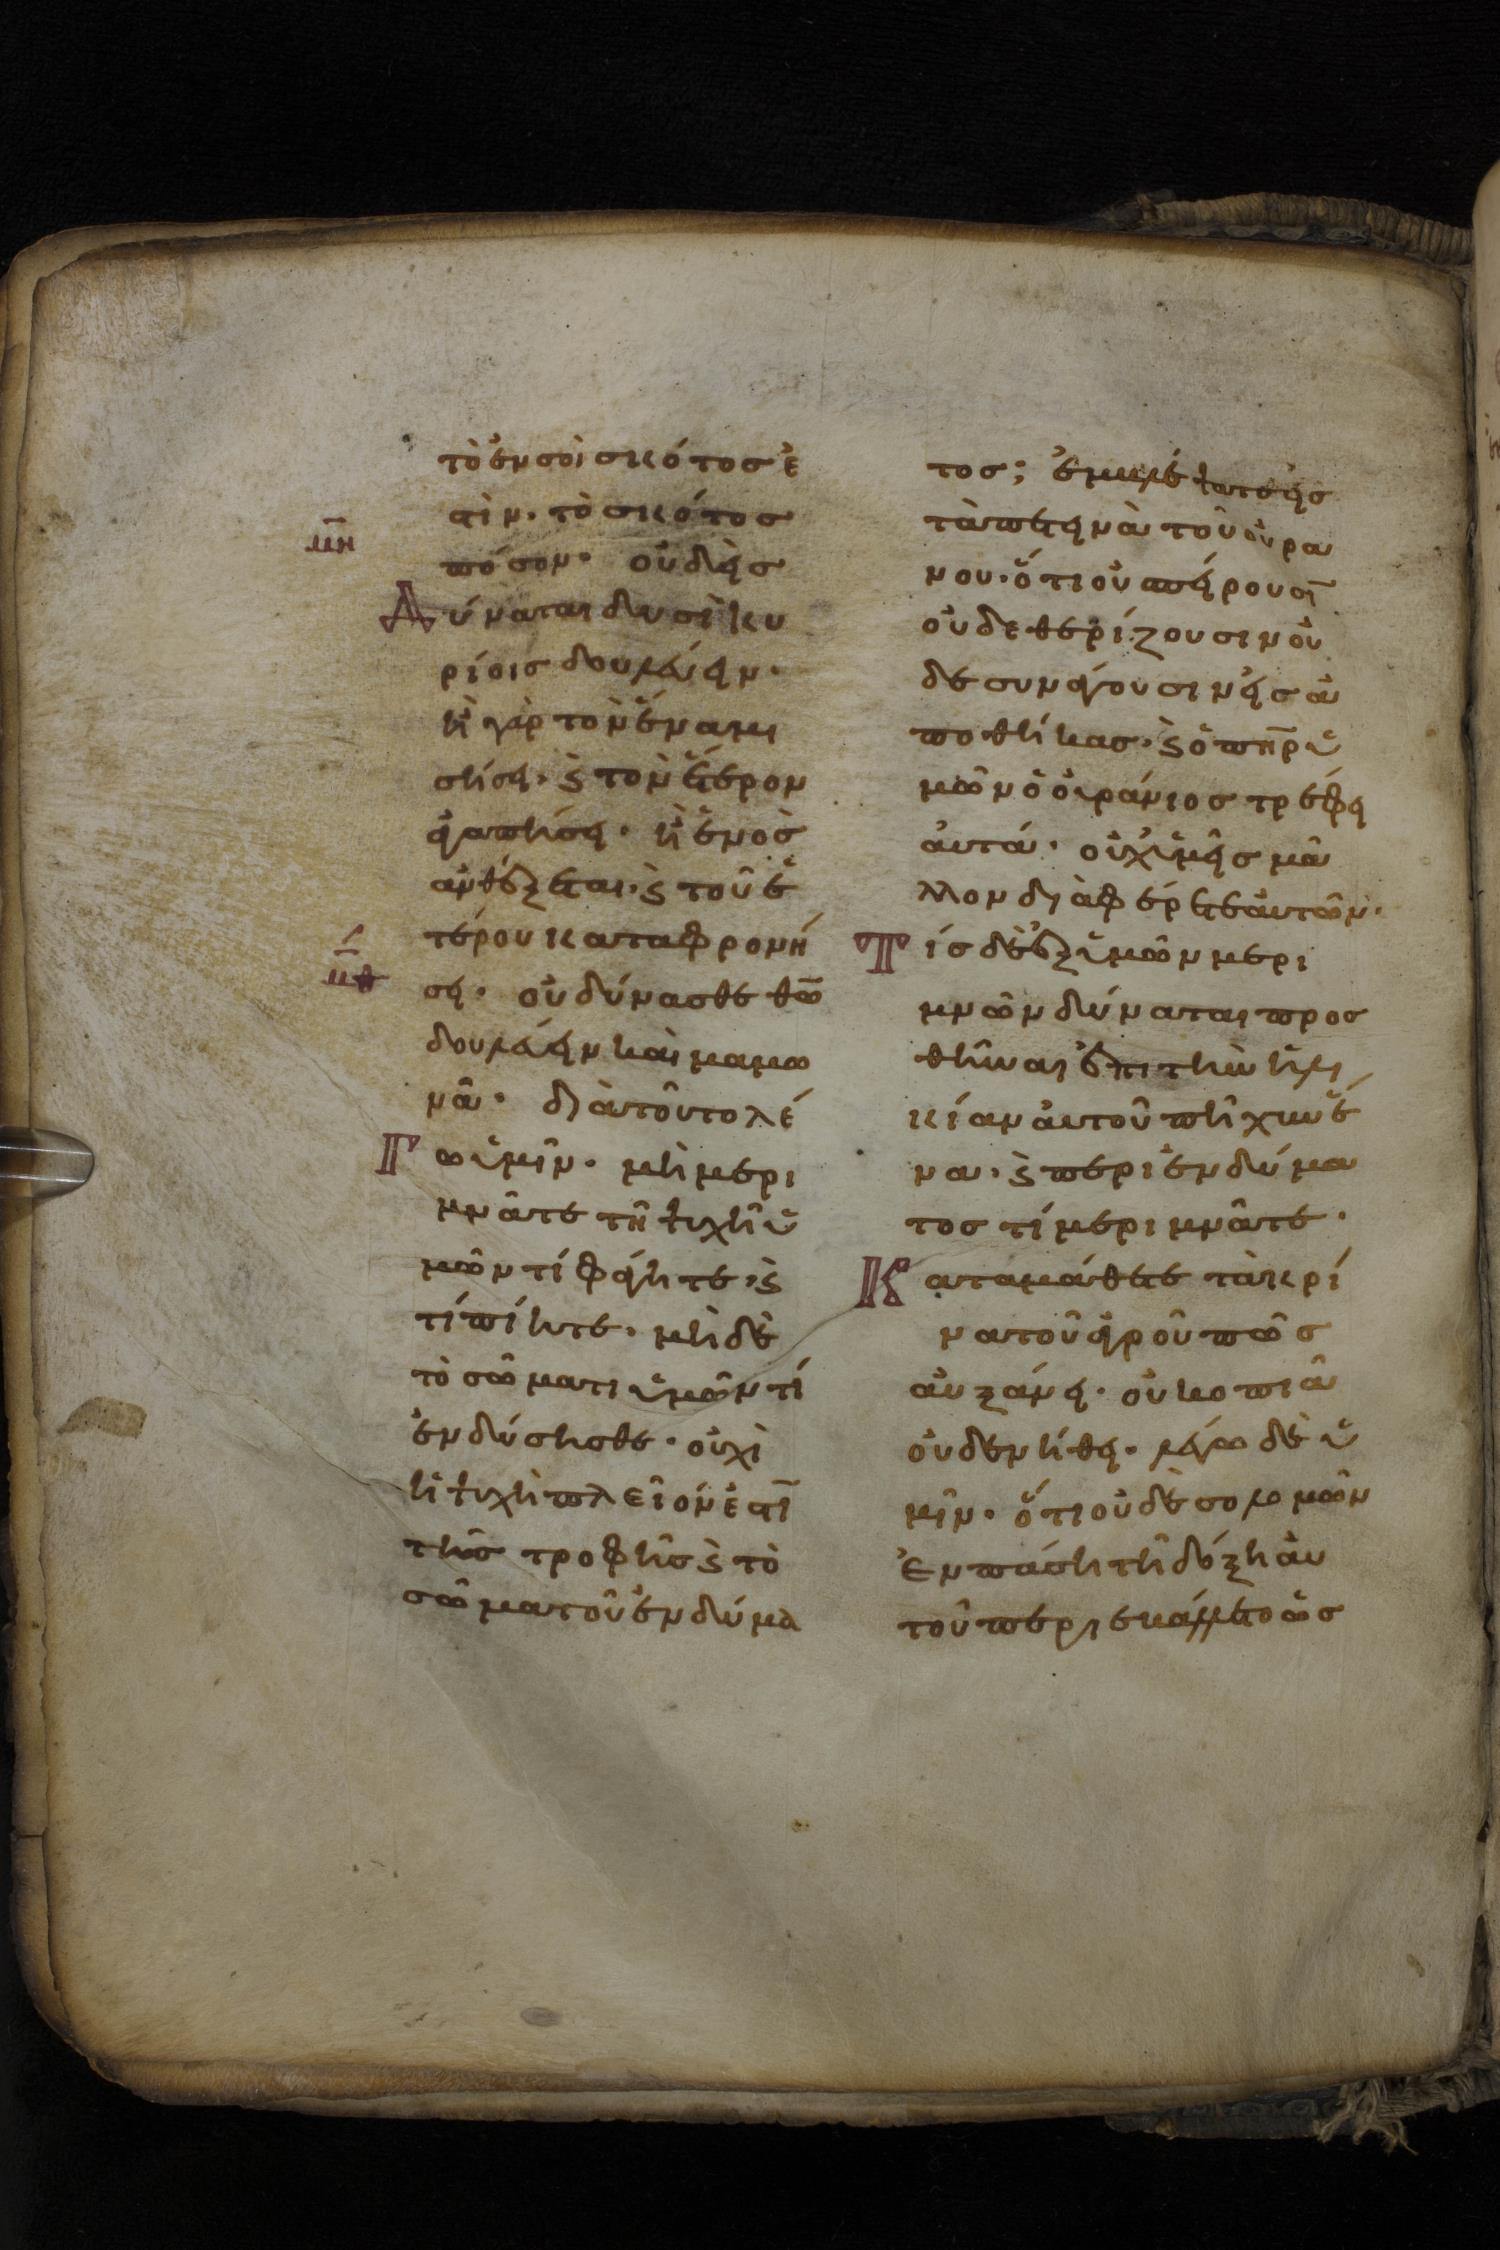 τὸ ἐν σοὶ σκότος ἐ
στὶν· τὸ σκότος
μ̅η̅
πόσον· οὐδεὶς
Δύναται δυσὶ κυ
ρίοις δουλεύειν·
ἢ γὰρ τὸν ἕνα μι
σήσει· ϗ τὸν ἕτερον
ἀγαπήσει· ἢ ἑνὸς
ἀνθέξεται· ϗ τοῦ ἑ
τέρου καταφρονή
μ̅θ̅
σει· οὐ δύνασθε θ̅ω̅
δουλεύειν καὶ μαμω
νᾶ· διὰ τοῦτο λέ
Γω ὑμῖν· μὴ μερι
μνᾶτε τῆ ψυχῆ ὑ
μῶν τί φάγητε· ϗ
τί πίητε· μὴ δὲ
τὸ σῶματι ὑμῶν τί
ἐνδύσησθε· οὐχὶ
ἡ ψυχὴ πλεῖόν ἐστῑ
τῆς τροφῆς ϗ τὸ
σῶμα τοῦ ἐνδύμα
τος; ἐμβλέψατε εἰς
τὰ πετεινὰ τοῦ οὐρα
νου· ὅτι οὐ σπείρουσῑ
οὐδε θερίζουσιν οὐ
δε συνάγουσιν εἰς ἀ
ποθήκας· ϗ ὁ π̅η̅ρ̅ ὑ
μῶν ὁ οὐράνιος τρέφει
αὐτά· οὐχ ὑμεῖς μᾶ
λλον διαφέρετε αὐτῶν·
Τίς δὲ ἐξ ὑμῶν μερι
μνῶν δύναται προσ
θῆναι ἐπι τὴν ἡλι
κίαν αὐτοῦ πῆχυν ἕ
να· ϗ περι ἐνδύμα
τος τί μεριμνᾶτε·
Καταμάθετε τὰ κρί
να τοῦ ἀγροῦ πῶς
αὐξάνει· οὐ κοπιᾶ
οὐδε νήθει· λέγω δὲ ὑ
μῖν· ὅτι οὐδὲ σολομῶν
Ἐν πάση τῆ δόξη αὐ
τοῦ περιεβάλλετο ὡς